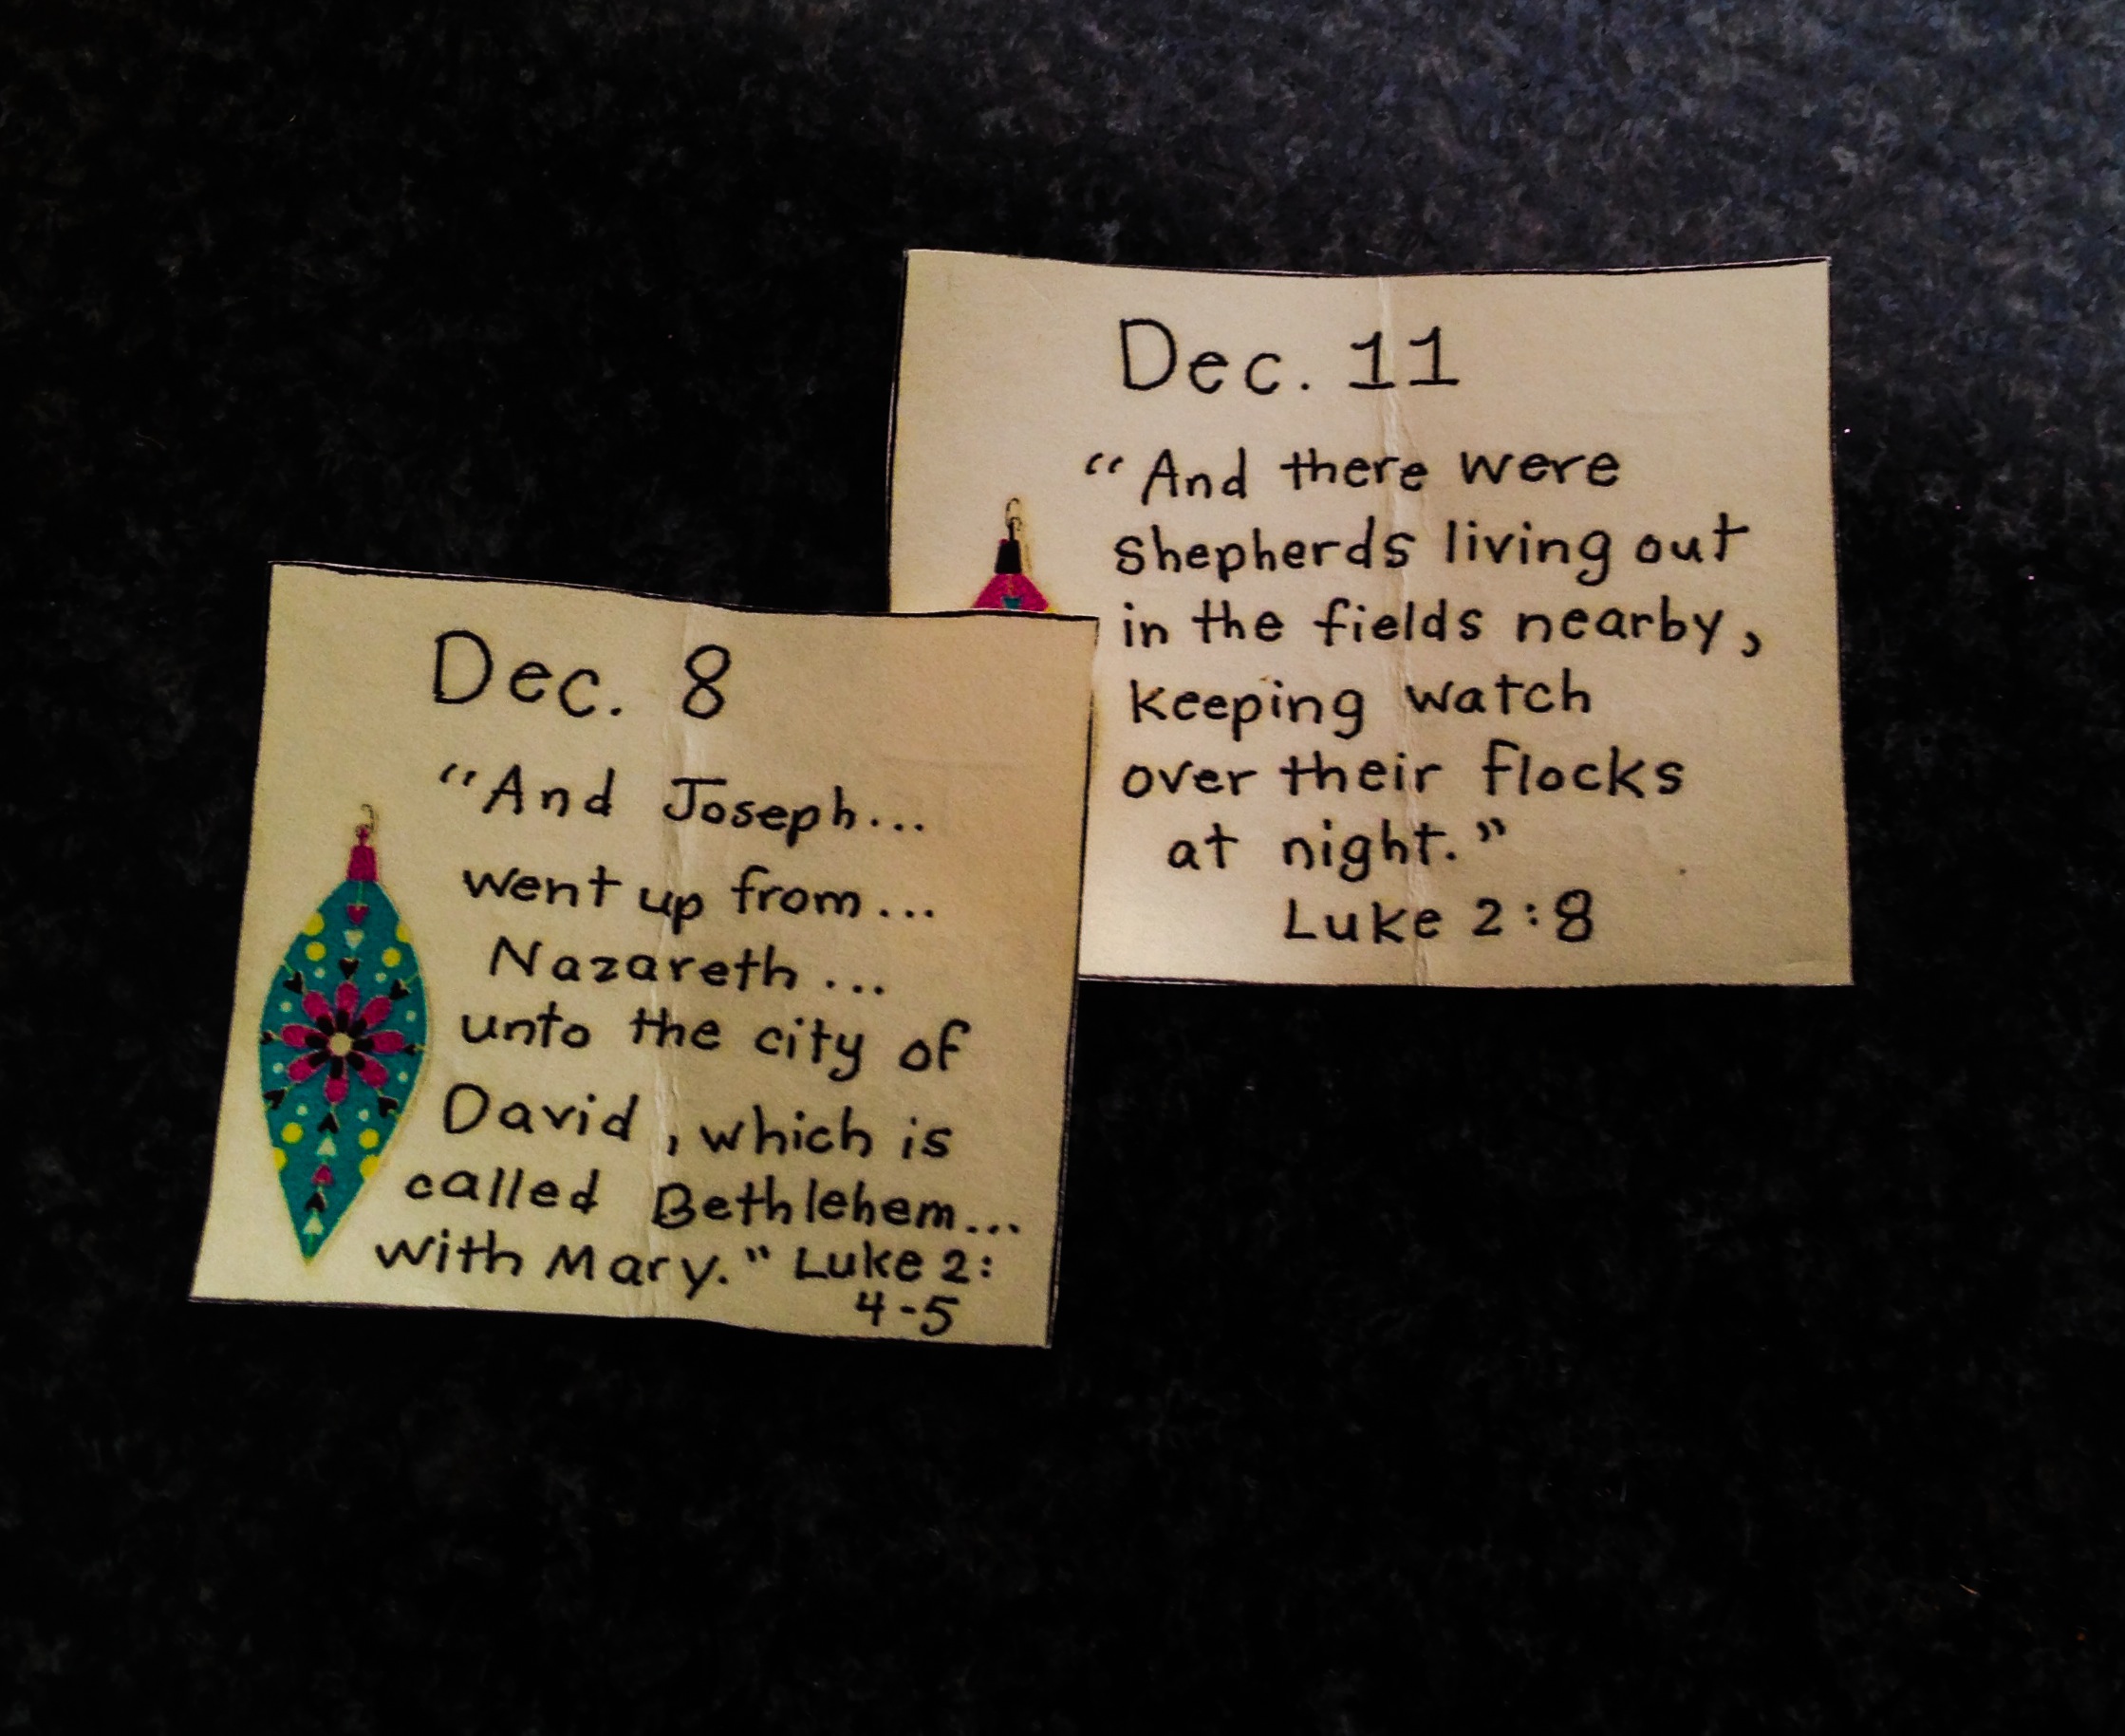 Dec. 8
"And Joseph...
went up from...
Nazareth...
unto the city of
David, which is
called Bethlehem...
with Mary." Luke 2:
4-5
Dec. 11
"And there were
shepherds living out
in the fields nearby,
keeping watch
over their flocks
at night."
Luke 2:8